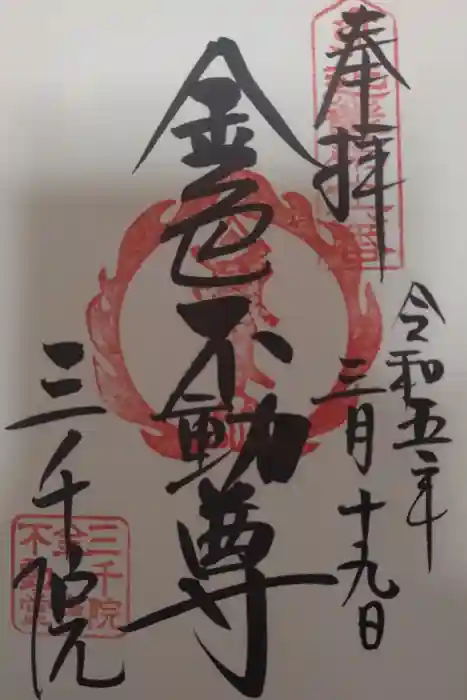 奉拝
令和五年
三月十九日
金色不動尊
三千院
三千院
金色
不動堂